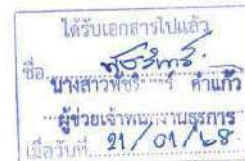 ได้รับเอกสารไปแล้ว
ชื่อ
นางสาวพัชริ คำแก้ว
ผู้ช่วยเจ้าพนักงานธุรการ
เมื่อวันที่ 21/01/68